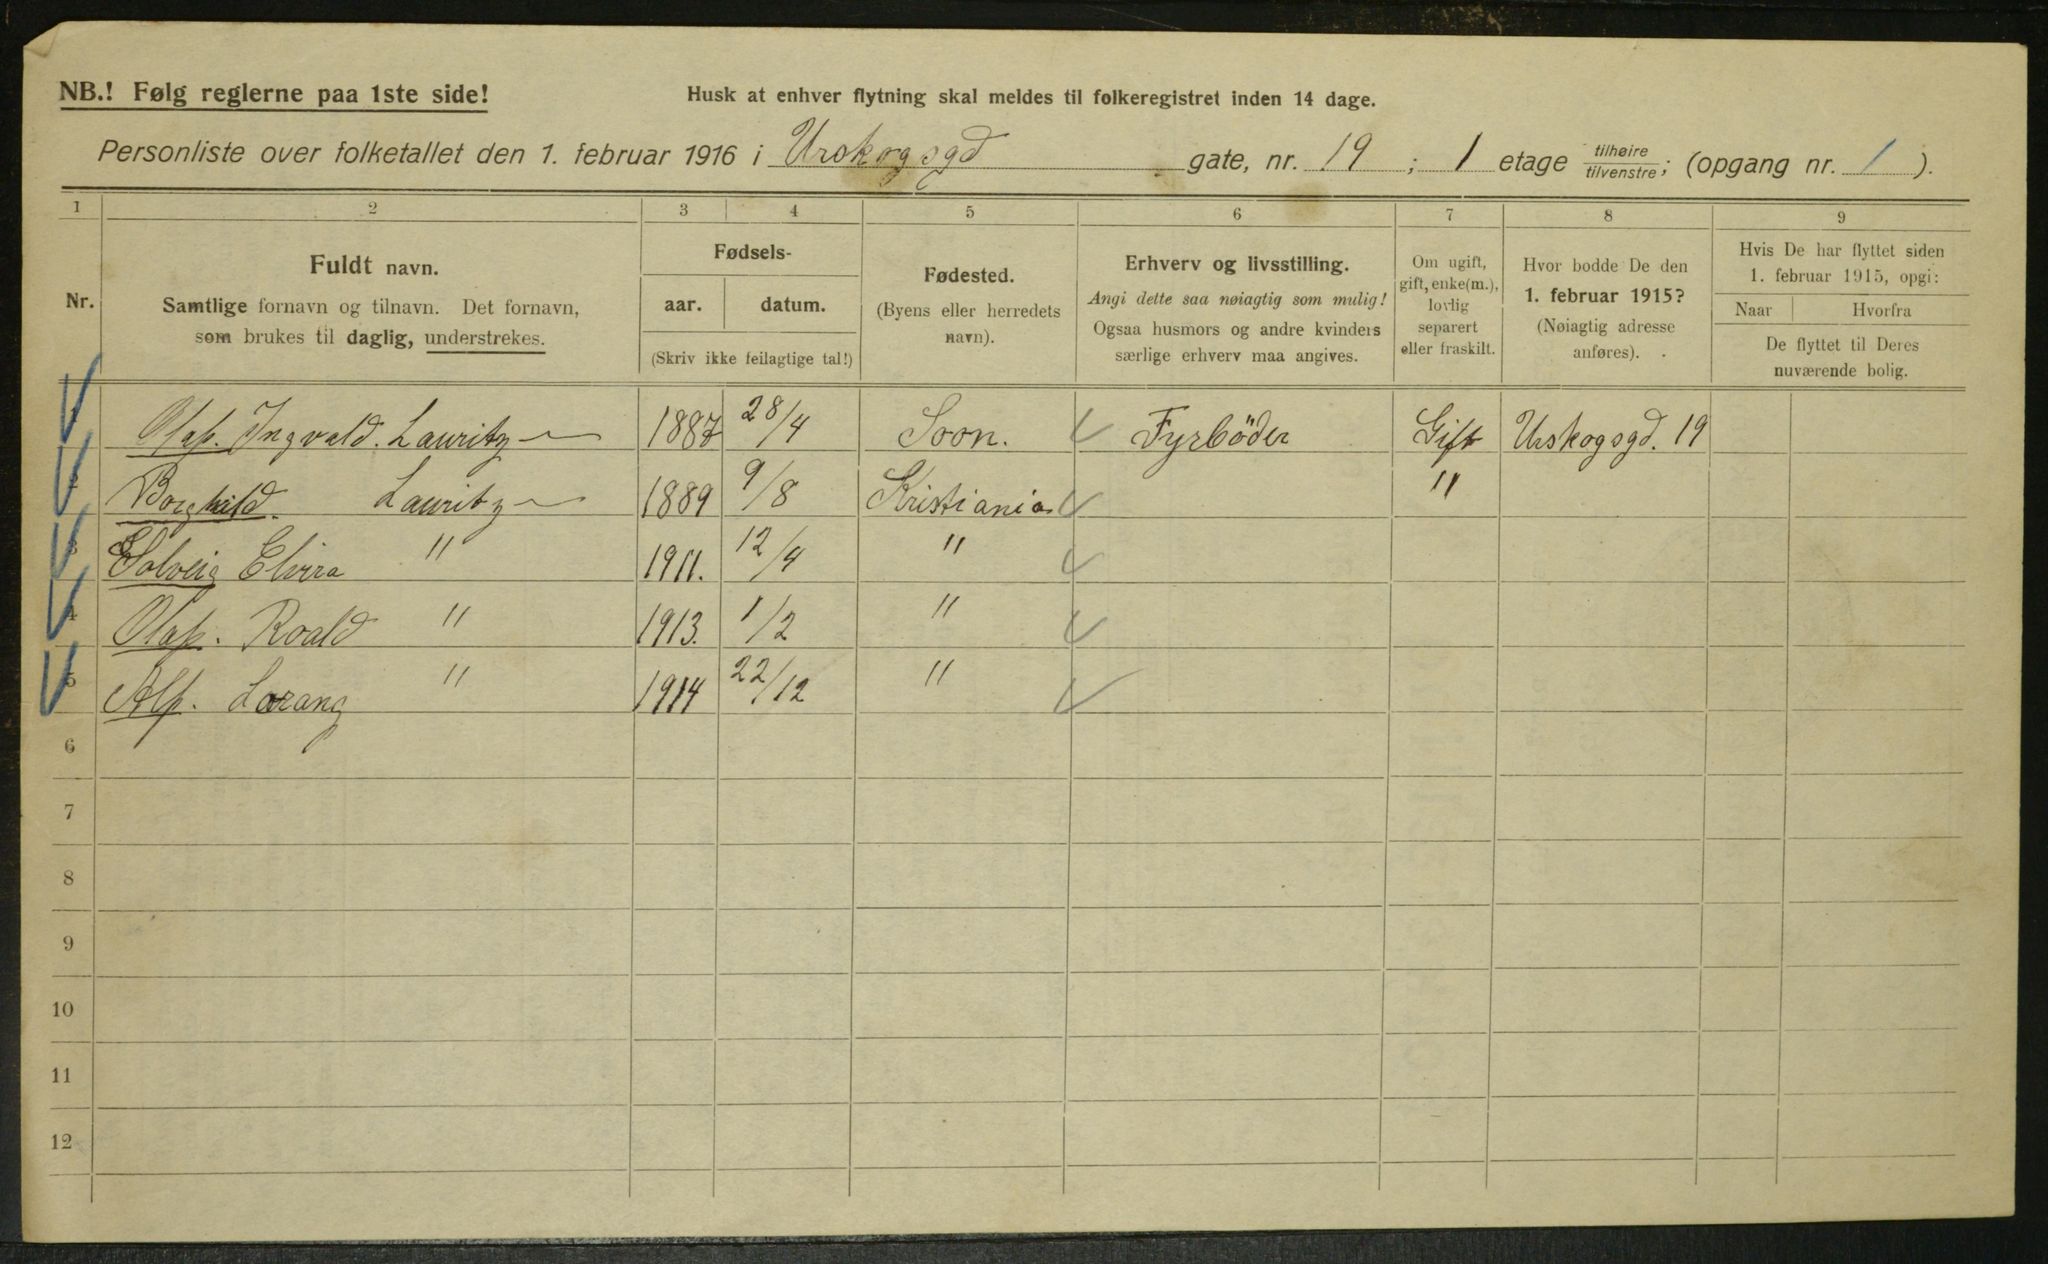 NB.! Følg reglerne paa 1ste side!
Husk at enhver flytning skal meldes til folkeregistret inden 14 dage.
Personliste over folketallet den 1. februar 1916 i Urskogsgd gate, nr. 19 ; 1 etage tilhøire/tilvenstre; (opgang nr. 1 ).
1 2 3 4 5 6 7 8 9
Nr.
Fuldt navn.
Samtlige fornavn og tilnavn. Det fornavn,
som brukes til daglig, understrekes.
Fødsels-
aar. datum.
(Skriv ikke feilagtige tal!)
Fødested.
(Byens eller herredets
navn).
Erhverv og livsstilling.
Angi dette saa nøiagtig som mulig!
Ogsaa husmors og andre kvinders
særlige erhverv maa angives.
Om ugift,
gift, enke(m.),
lovlig
separert
eller fraskilt.
Hvor bodde De den
1. februar 1915?
(Nøiagtig adresse
anføres).
Hvis De har flyttet siden
1. februar 1915, opgi:
Naar Hvorfra
De flyttet til Deres
nuværende bolig.
1 Olaf. Ingvald. Lauritz 1887 28/4 Soon. Fyrböder Gift Urskogsgd. 19
2 Borghild. Lauritz 1889 9/8 Kristiania "
3 Solveig Elvira " 1911. 12/4 "
4 Olaf. Roald " 1913. 1/2 "
5 Alf. Lorang " 1914 22/12 "
6
7
8
9
10
11
12